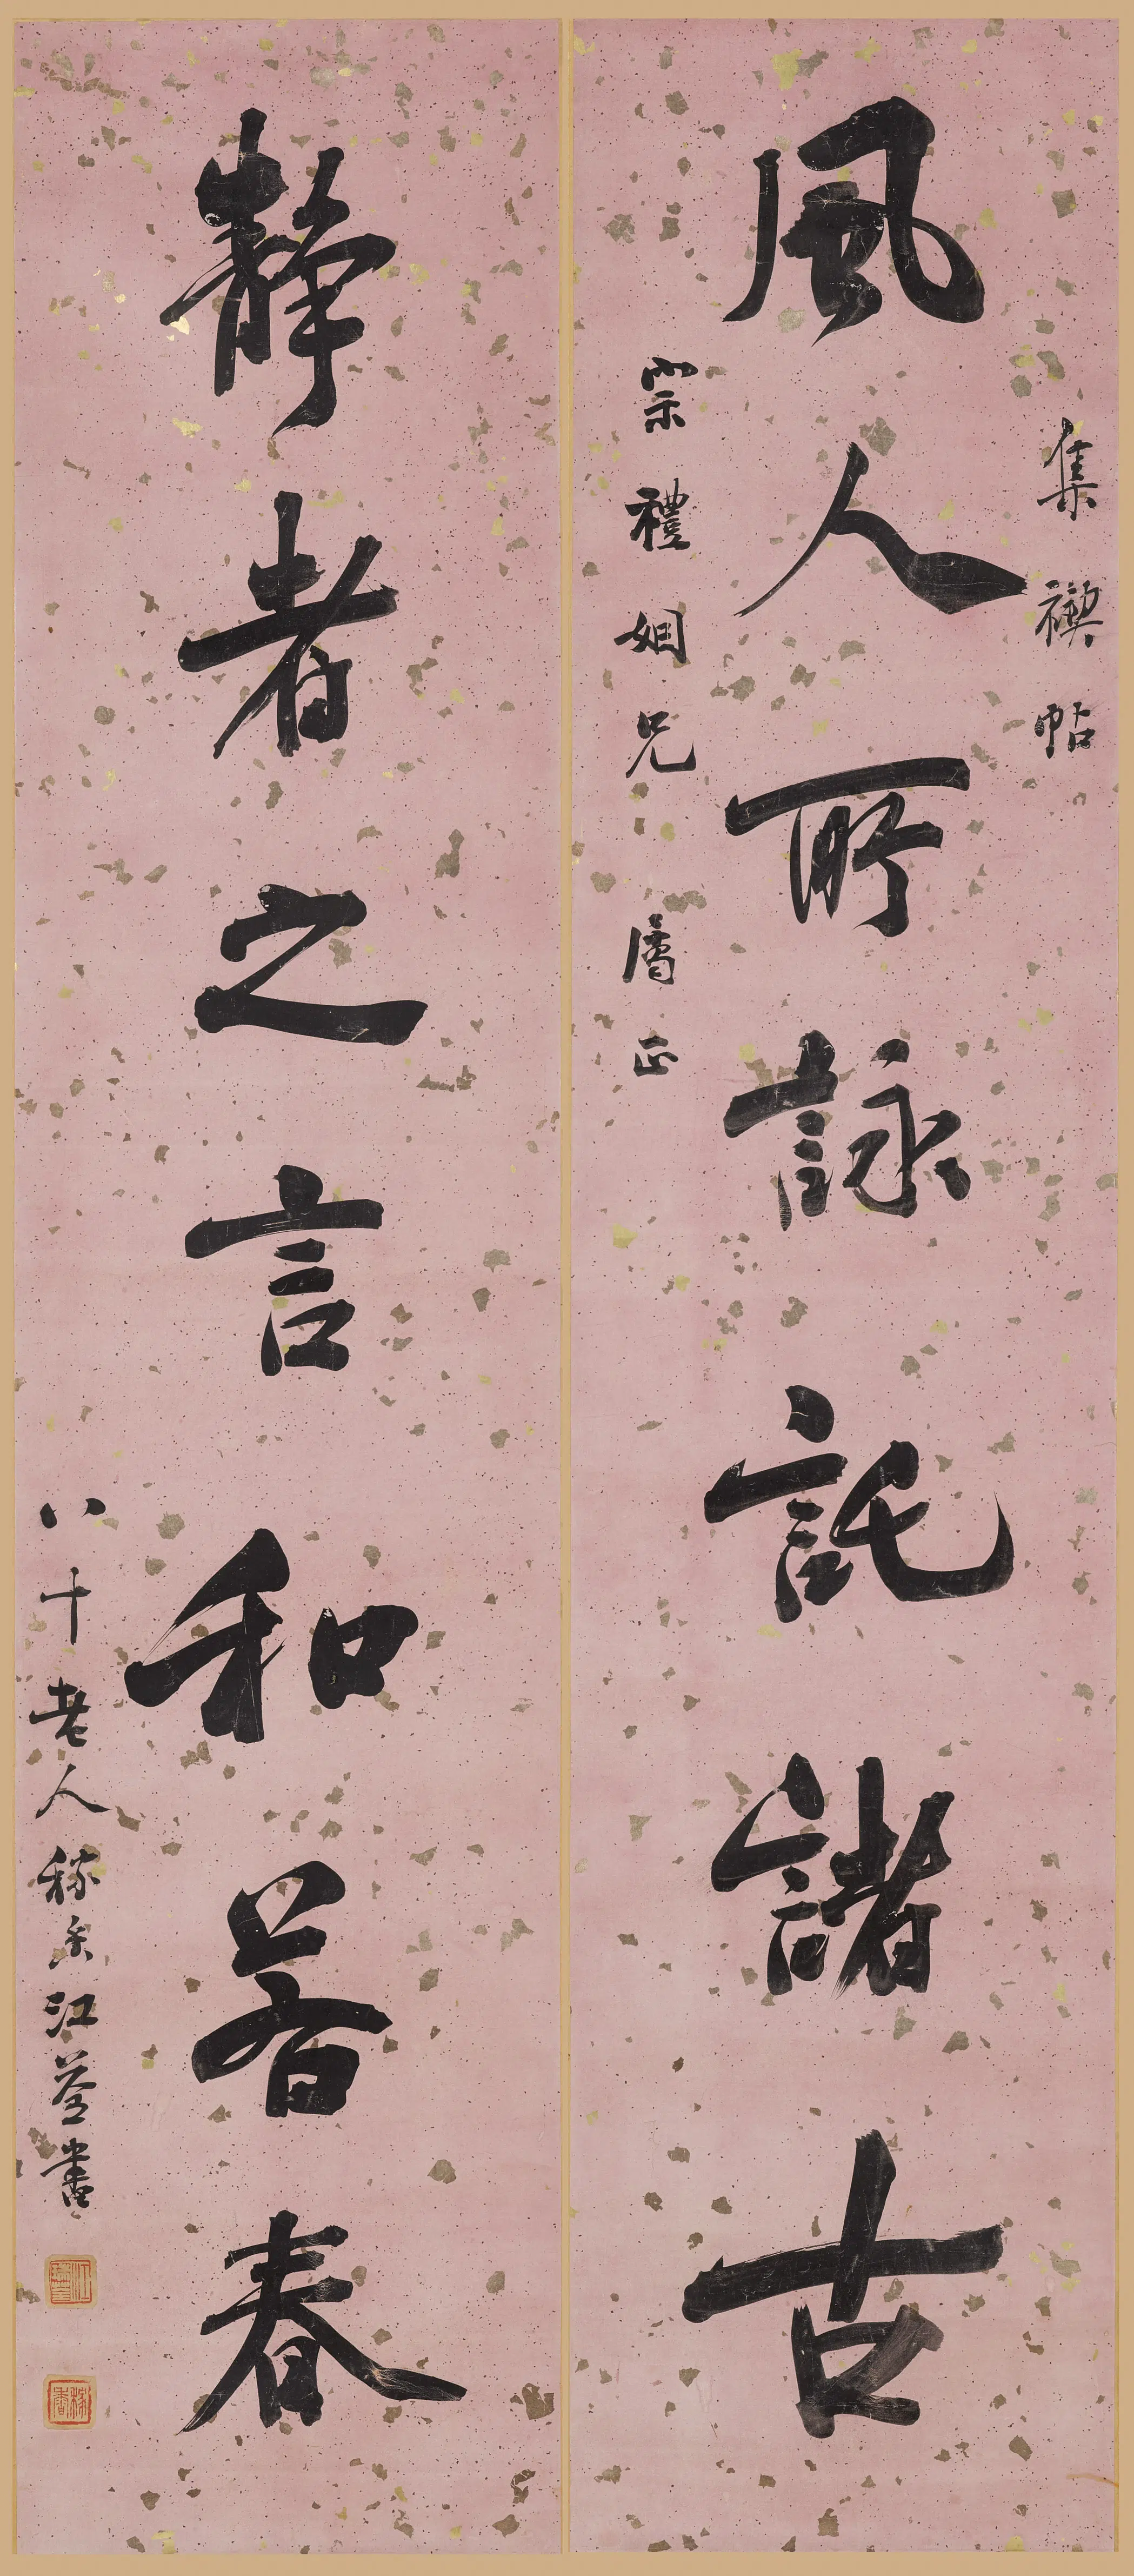 集禊帖
風人所詠託諸古
崇禮姻兄 屬正
靜者之言和若春
八十老人稼香江荃書
稼香